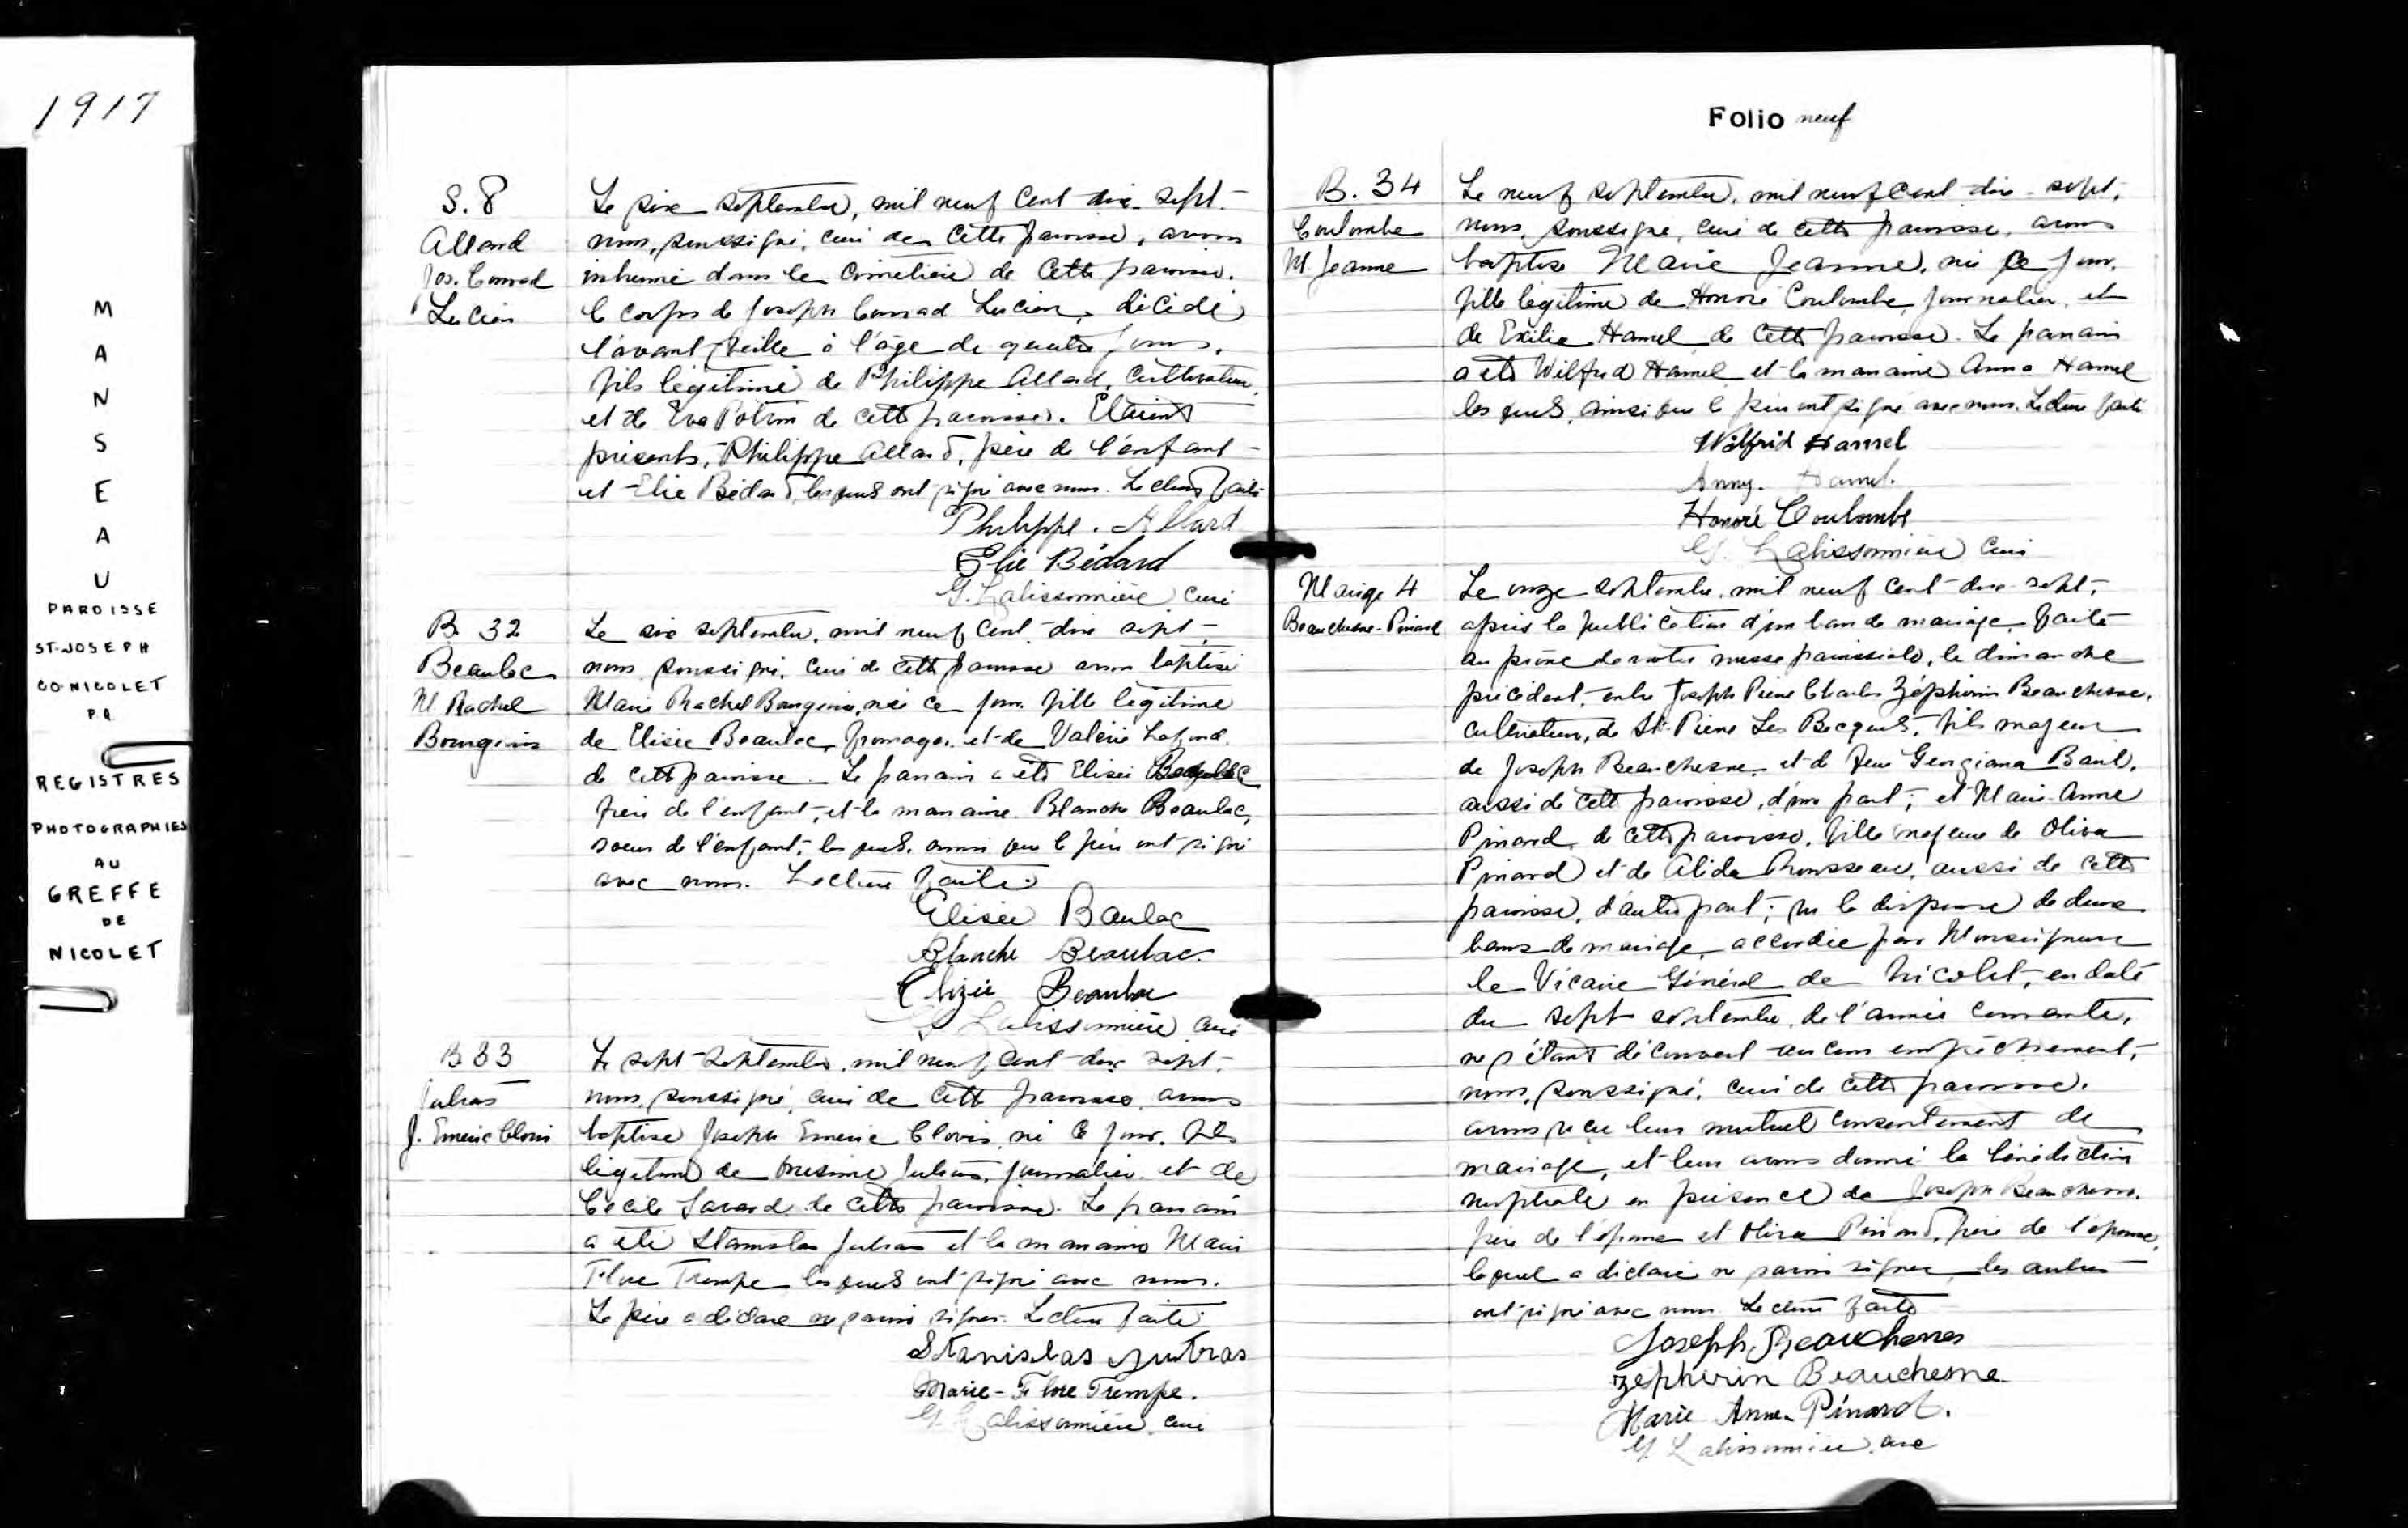 1917
M
A
N
S
E
A
U
PAROISSE
ST-JOSEPH
CO-NICOLET
P.Q.
REGISTRES
PHOTOGRAPHIES
AU
GREFFE
DE
NICOLET
S. 8
Allard
Jos. Conrad
Lucien
Le six septembre, mil neuf cent dix-sept,
nous, soussigné, curé de cette paroisse, avons
inhumé dans le cimetière de cette paroisse,
le corps de Joseph Conrad Lucien, décédé
l'avant veille à l'âge de quatre jours,
fils légitime de Philippe Allard, cultivateur,
et de Eva Potvin de cette paroisse. Etaient
présents, Philippe Allard, père de l'enfant
et Elie Bédard, lesquels ont signé avec nous. Lecture faite
Philippe. Allard
Elie Bédard
G. Lalissonnière curé
B. 32
Beaulac
M. Rachel
Bourgeois
Le six septembre, mil neuf cent dix sept,
nous soussigné, curé de cette paroisse avons baptisé
Marie Rachel Bourgeois, née ce jour fille légitime
de Elisée Beaulac, fromager, et de Valérie Lafond
de cette paroisse. Le parrain a été Elisée Beaulac
frère de l'enfant, et la marraine Blanche Beaulac,
soeur de l'enfant, lesquels, ainsi que le père ont signé
avec nous. Lecture faite.
Elisée Baulac
Blanche Beaulac.
Elizée Beaulac
G. Lalissonnière curé
B 33
Jutras
J. Emeric Clovis
Le sept septembre, mil neuf cent dix sept,
nous, soussigné, curé de cette paroisse, avons
baptisé Joseph Emeric Clovis, né ce jour, fils
légitime de Onésime Jutras, journalier, et de
Cécile Savard de cette paroisse. Le parrain
a été Stanislas Jutras et la marraine Marie
Flore Trempe lesquels ont signé avec nous.
Le père a déclaré ne savoir signer. Lecture faite.
Stanislas Jutras
Marie-Flore Trempe.
G. Lalissonnière curé
Folio neuf
B. 34
Coulombe
M. Jeanne
Le neuf septembre, mil neuf cent dix-sept,
nous, soussigné, curé de cette paroisse, avons
baptisé Marie Jeanne, née ce jour,
fille légitime de Honoré Coulombe, journalier, et
de Exilia Hamel de cette paroisse. Le parrain
a été Wilfrid Hamel et la marraine Anna Hamel
lesquels, ainsi que le père ont signé avec nous. Lecture faite
Wilfrid Hamel
Anny. Hamel.
Honoré Coulombe
G. Lalissonnière curé
Mariage 4
Beauchesne-Pinard
Le onze septembre, mil neuf cent dix-sept,
après la publication d'un ban de mariage, faite
au prône de notre messe paroissiale, le dimanche
précédent, entre Joseph Pierre Charles Zéphirin Beauchesne,
cultivateur, de St-Pierre Les Becquets, fils majeur
de Joseph Beauchesne, et de feue Georgiana Baril,
aussi de cette paroisse, d'une part; et Marie-Anne
Pinard, de cette paroisse, fille majeure de Oliva
Pinard et de Alida Rousseau, aussi de cette
paroisse, d'autre part; vu la dispense de deux
bans de mariage accordée par Monseigneur
le Vicaire Général de Nicolet, en date
du sept septembre, de l'année courante,
ne s'étant découvert aucun empêchement,
nous, soussigné, curé de cette paroisse,
avons reçu leur mutuel consentement de
mariage, et leur avons donné la bénédiction
nuptiale en présence de Joseph Beauchesne,
père de l'époux et Oliva Pinard, père de l'épouse,
lequel a déclaré ne savoir signer, les autres
ont signé avec nous. Lecture faite
Joseph Beauchesne
Zéphirin Beauchesne
Marie Anne Pinard.
G. Lalissonnière, curé